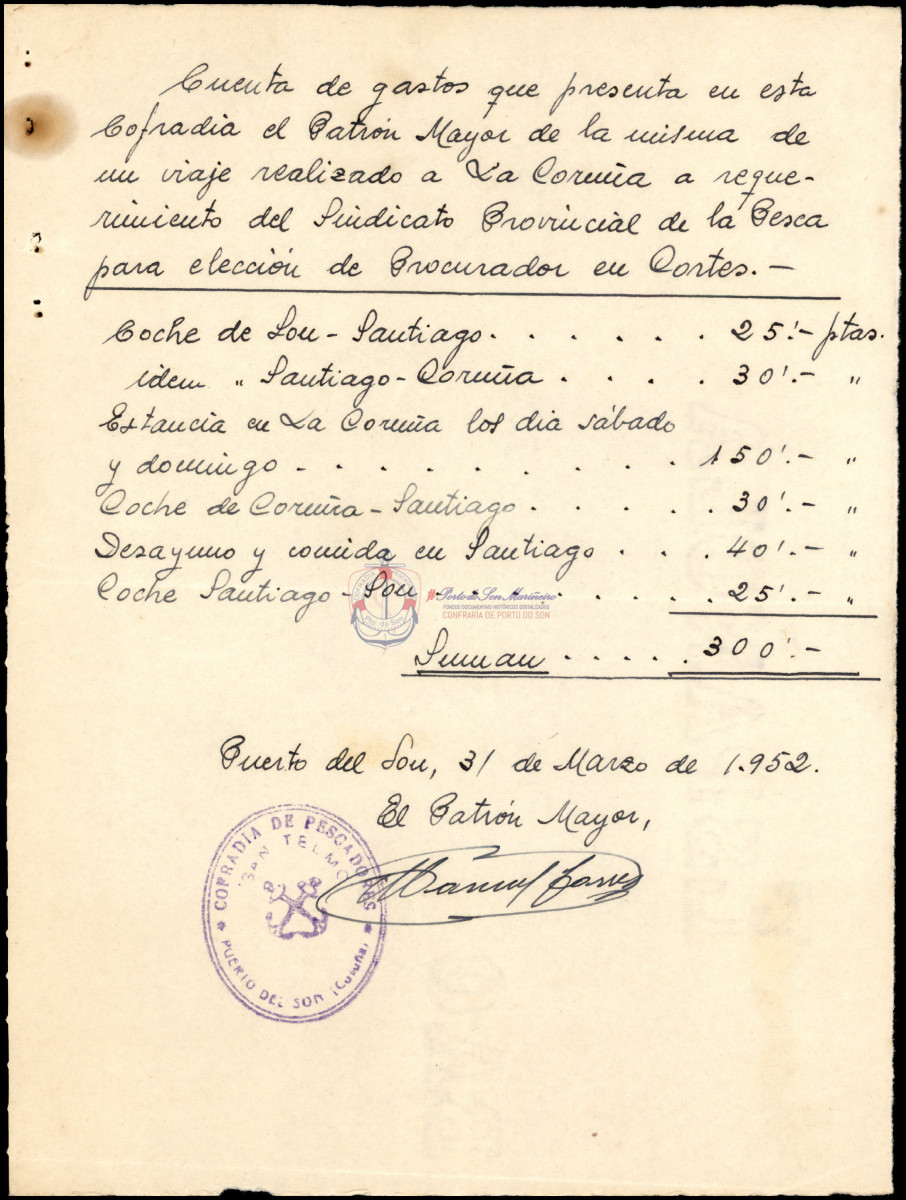 Cuenta de gastos que presenta en esta
Cofradia el Patrón Mayor de la misma de
un viaje realizado a La Coruña a reque-
rimiento del Sindicato Provincial de la Pesca
para elección de Procurador en Cortes.—
Coche de Son - Santiago . . . . . . 25'.- ptas.
idem " Santiago - Coruña . . . . 30'.- "
Estancia en La Coruña los dia sábado
y domingo - . . . . . . . . . 150'.- "
Coche de Coruña - Santiago . . . . . 30'.- "
Desayuno y comida en Santiago . . . 40'.- "
Coche Santiago - Son . . . . . . . . 25'.- "
COFRADIA DE PESCADORES
Pto. do Son
#Porto do Son Mariñeiro
FONDOS DOCUMENTAIS HISTÓRICOS DIXITALIZADOS
CONFRARÍA DE PORTO DO SON
Suman . . . . . 300'.-
Puerto del Son, 31 de Marzo de 1.952.
El Patrón Mayor,
COFRADIA DE PESCADORES
"SAN TELMO"
PUERTO DEL SON (Coruña)
Manuel